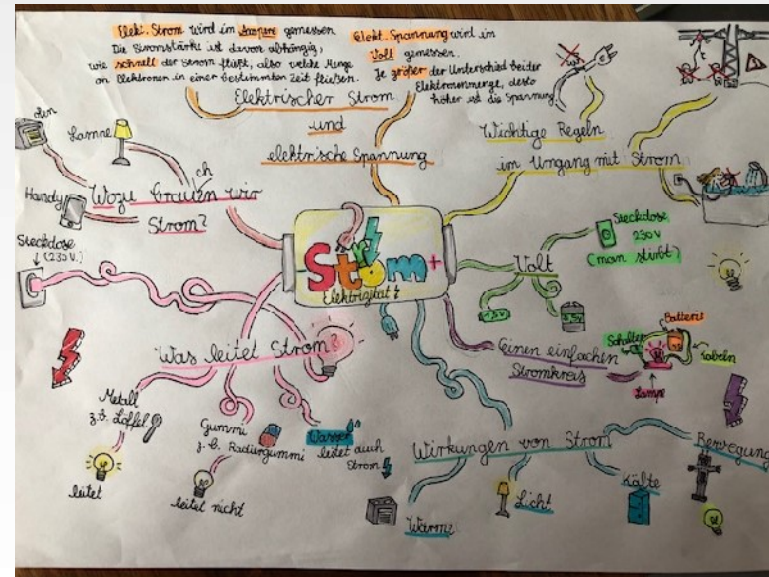 Elek. Strom wird im Ampere gemessen
Die Stromstärke ist davon abhängig,
wie schnell der Strom fließt, also welche Menge
an Elektronen in einer bestimmten Zeit fließen.
Elekt. Spannung wird in
Volt gemessen.
Je größer der Unterschied beider
Elektronenmenge, desto
höher ist die Spannung.
Elektrischer Strom
und
elektrische Spannung
Wichtige Regeln
im Umgang mit Strom
Lampe
Handy
Wozu brauchen wir
Strom?
Steckdose
(230 V.)
Strom
Elektrizität
Volt
Steckdose
230 V
(man stirbt)
1,5V
Was leitet Strom?
Einen einfachen
Stromkreis
Schalter
Batterie
Kabeln
Lampe
Metall
z.B. Löffel
leitet
Gummi
z.B. Radiergummi
leitet nicht
Wasser
leitet auch
Strom
Wirkungen von Strom
Wärme
Licht
Kälte
Bewegung